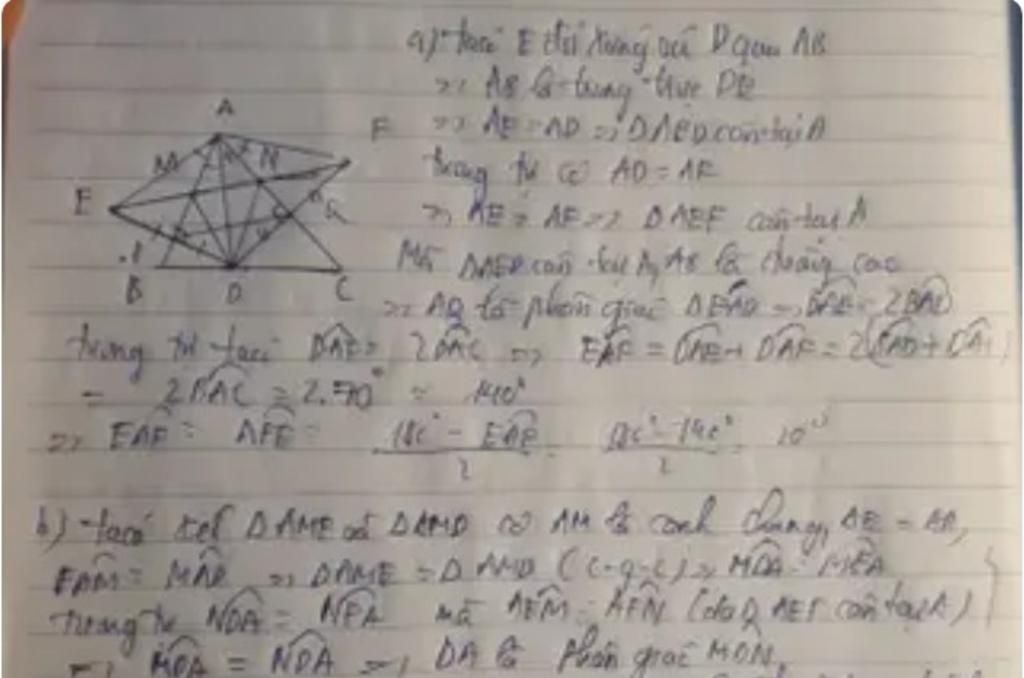 a) ta có E đối xứng với D qua AB
=> AB là trung trực DE
=> AE = AD => ΔAED cân tại A
tương tự có AD = AF
=> AE = AF => ΔAEF cân tại A
Mà ΔAED cân tại A, AB là đường cao
=> AB là phân giác => DAE = 2BAD
tương tự ta có DAF = 2DAC => EAF = DAE + DAF = 2(BAD + DAC)
= 2BAC = 2.70° = 140°
=> = AFE = 180° - EAF / 2 = 180° - 140° / 2 = 20°
b) ta có xét ΔAME và ΔAMD có AM là cạnh chung, AE = AD,
EAM = MAD => ΔAME = ΔAMD (c-g-c) => MDA = MEA
tương tự NDA = NFA mà AEM = AFN (do Δ AEF cân tại A)
=> MDA = NDA => DA là phân giác MDN.
A
M
N
F
E
B
D
C